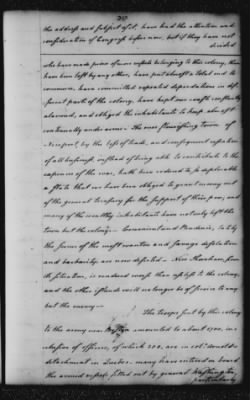 207
the address and subject of it, have had the attention and
consideration of Congress before now, but if they have not
decided
who have made prize of more vessels belonging to this colony, than
have been left by any other, have put almost a total end to
commerce, have committed repeated depredations in dif-
ferent parts of the colony, have kept our coasts constantly
alarmed, and obliged the inhabitants to keep almost
continually under arms. The once flourishing town of
Newport, by the loss of trade, and consequent expulsion
of all business, instead of being able to contribute to the
expenses of the war, hath been reduced to so deplorable
a state that we have been obliged to grant money out
of the general treasury for the support of their poor, and
many of the wealthy inhabitants have not only left the
town but the colony. Conanicut and Prudence, late by
the scenes of the most wanton and savage desolation
and barbarity are now deserted. New Shoreham, from
its situation, is rendered worse than useless to the colony
and the other islands will no longer be of service to any
but the enemy.
The troops sent by this colony
to the army near Boston amounted to about 1700, in-
clusive of officers, of which 200, are in col: Arnold's
detachment in Quebec. many have entered on board
the armed vessels fitted out by general Washington,
particularly